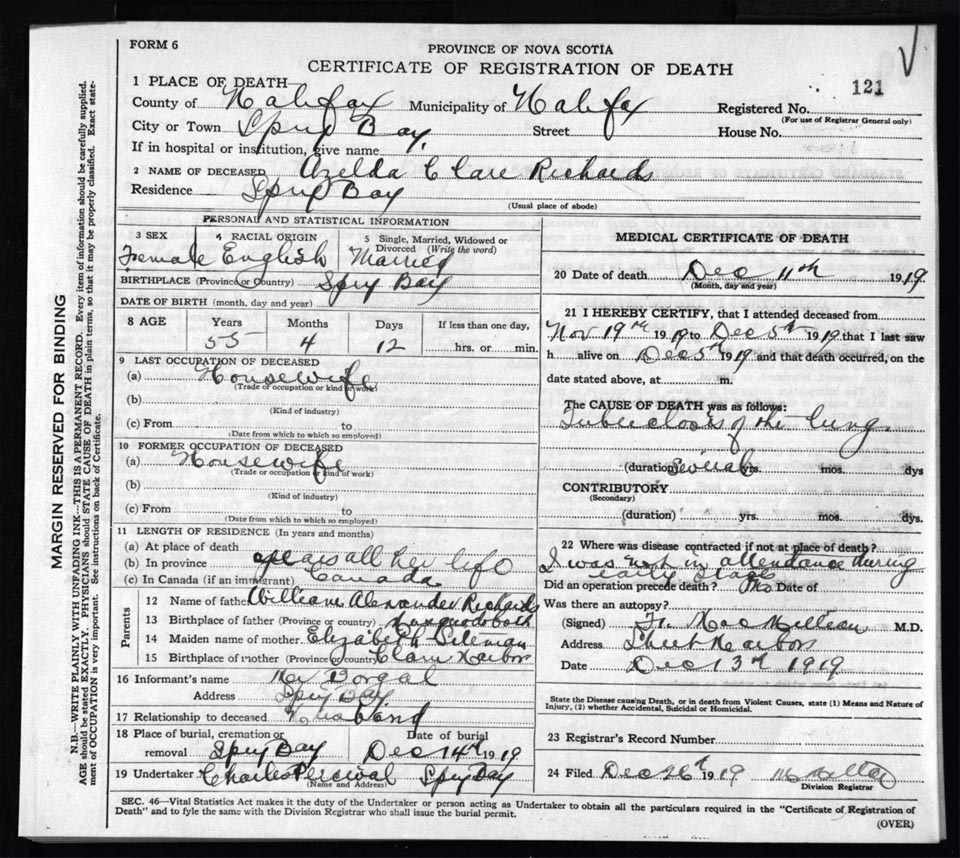 FORM 6
PROVINCE OF NOVA SCOTIA
CERTIFICATE OF REGISTRATION OF DEATH
121
1 PLACE OF DEATH
County of Halifax Municipality of Halifax Registered No.
(For use of Registrar General only)
City or Town Spry Bay, Street House No.
If in hospital or institution, give name
2 NAME OF DECEASED Azelda Clare Richards
Residence Spry Bay
(Usual place of abode)
PERSONAL AND STATISTICAL INFORMATION
3 SEX 4 RACIAL ORIGIN 5 Single, Married, Widowed or Divorced (Write the word)
Female English Married
BIRTHPLACE (Province or Country) Spry Bay
DATE OF BIRTH (month, day and year)
8 AGE Years Months Days If less than one day,
55 4 12 hrs. or min.
9 LAST OCCUPATION OF DECEASED
(a) Housewife
(Trade or occupation or kind of work)
(b)
(Kind of industry)
(c) From to
(Date from which to which so employed)
10 FORMER OCCUPATION OF DECEASED
(a) Housewife
(Trade or occupation or kind of work)
(b)
(Kind of industry)
(c) From to
(Date from which to which so employed)
11 LENGTH OF RESIDENCE (In years and months)
(a) At place of death
(b) In province all her life
(c) In Canada (if an immigrant) Canada
Parents
12 Name of father William Alexander Richards
13 Birthplace of father (Province or country) Musquodoboit
14 Maiden name of mother Elizabeth
15 Birthplace of mother (Province or country) Clam Harbor
16 Informant's name
Address Spry Bay
17 Relationship to deceased Husband
18 Place of burial, cremation or removal Date of burial
Spry Bay Dec 14th 1919
19 Undertaker Charles Percival Spry Bay
(Name and Address)
MEDICAL CERTIFICATE OF DEATH
20 Date of death Dec 11th 1919
(Month, day and year)
21 I HEREBY CERTIFY, that I attended deceased from
Nov 19th 1919 to Dec 5th 1919 that I last saw
h alive on Dec 5th 1919 and that death occurred, on the
date stated above, at m.
The CAUSE OF DEATH was as follows:
Tuberculosis of the lung.
(duration) Several yrs. mos. dys
CONTRIBUTORY
(Secondary)
(duration) yrs. mos. dys.
22 Where was disease contracted if not at place of death?
I was not in attendance during
early stages
Did an operation precede death? No Date of
Was there an autopsy?
(Signed) M.D.
Address Sheet Harbor
Date Dec 13th 1919
State the Disease causing Death, or in death from Violent Causes, state (1) Means and Nature of
Injury, (2) whether Accidental, Suicidal or Homicidal.
23 Registrar's Record Number
24 Filed Dec 26th 1919
Division Registrar
SEC. 46—Vital Statistics Act makes it the duty of the Undertaker or person acting as Undertaker to obtain all the particulars required in the "Certificate of Registration of
Death" and to fyle the same with the Division Registrar who shall issue the burial permit.
(OVER)
MARGIN RESERVED FOR BINDING
N.B.—WRITE PLAINLY WITH UNFADING INK—THIS IS A PERMANENT RECORD. Every item of information should be carefully supplied.
AGE should be stated EXACTLY. PHYSICIANS should STATE CAUSE OF DEATH in plain terms, so that it may be properly classified. Exact state-
ment of OCCUPATION is very important. See instructions on back of Certificate.